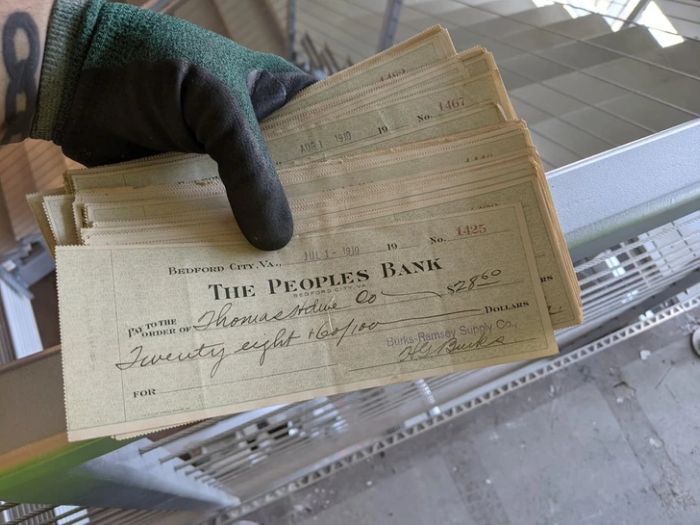 8
1492
APR 1 1910 19 No. 1467
JUL 1 - 1910 19 No. 1425
BEDFORD CITY, VA.,
THE PEOPLES BANK
BEDFORD CITY, VA.
PAY TO THE ORDER OF Thomas Hdwe Co $28 60
Twenty eight + 60/100 DOLLARS
Burks-Ramsey Supply Co.,
FOR